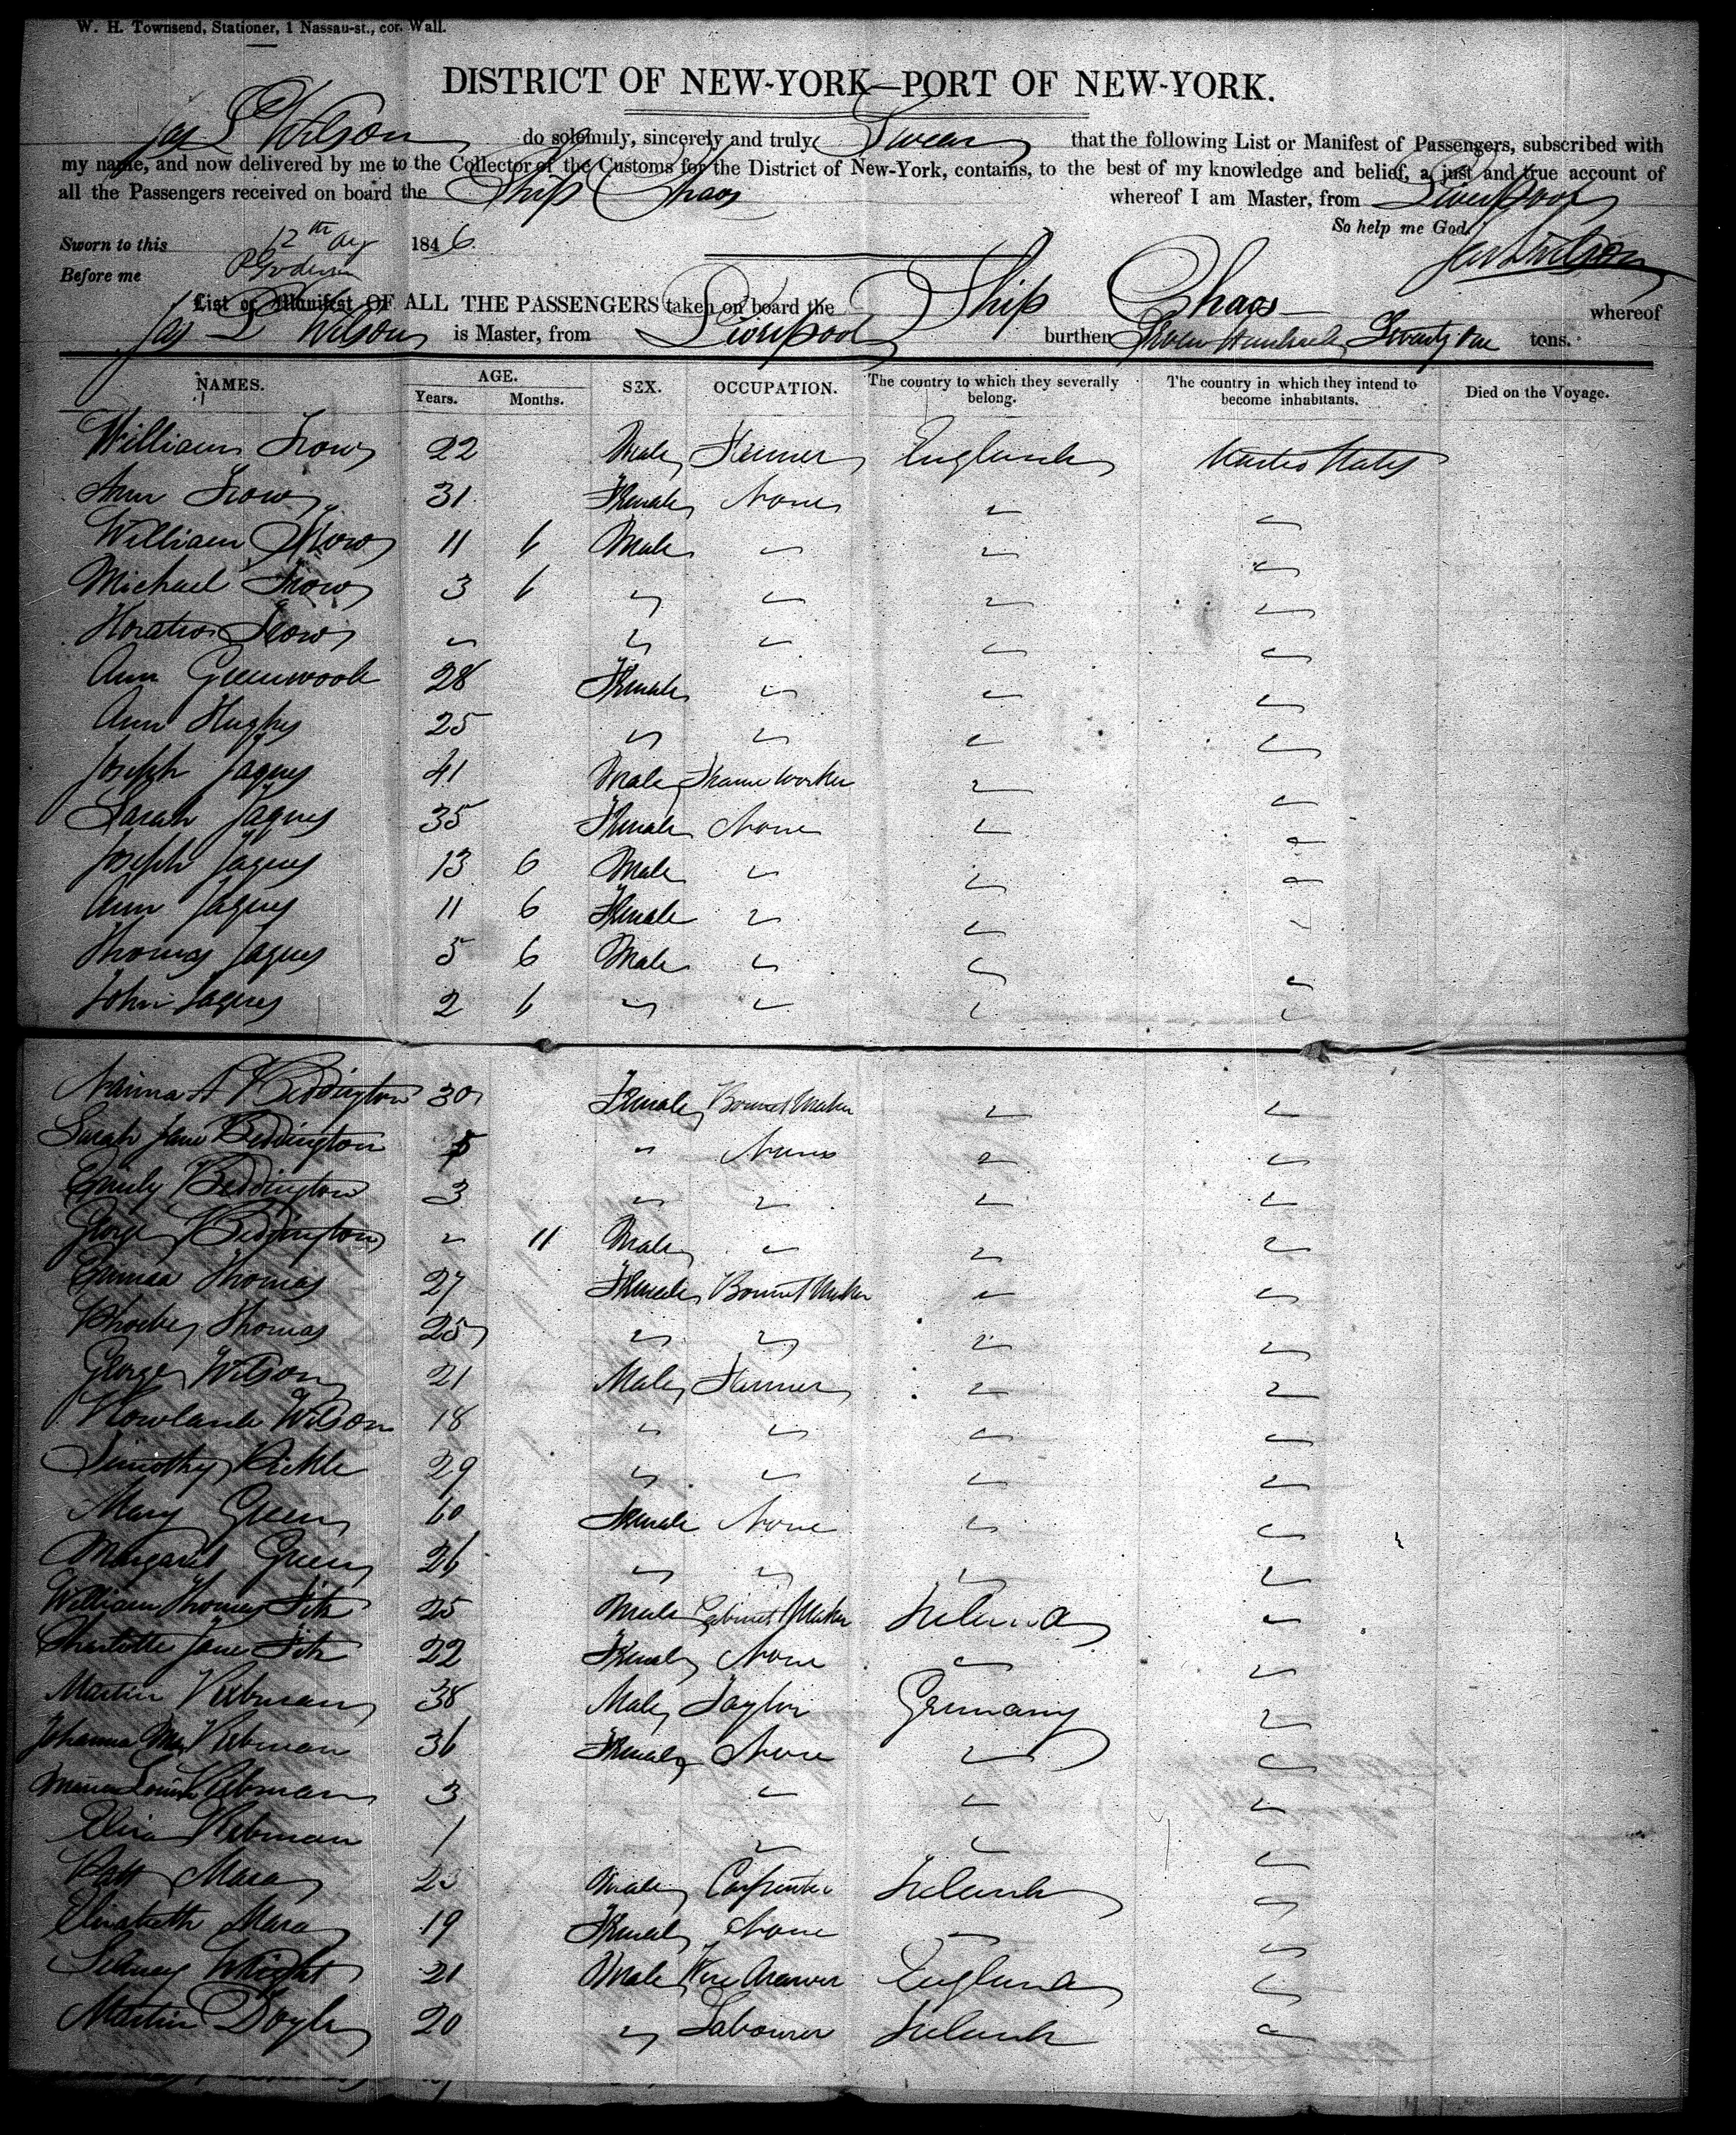 W. H. Townsend, Stationer, 1 Nassau-st., cor. Wall.
DISTRICT OF NEW-YORK—PORT OF NEW-YORK.
Jas L Wilson do solemnly, sincerely and truly Swear that the following List or Manifest of Passengers, subscribed with
my name, and now delivered by me to the Collector of the Customs for the District of New-York, contains, to the best of my knowledge and belief, a just and true account of
all the Passengers received on board the Ship Chaos whereof I am Master, from Liverpool
So help me God.
Sworn to this 12th Aug 1846. Jas L Wilson
Before me
List or Manifest OF ALL THE PASSENGERS taken on board the Ship Chaos whereof
Jas L Wilson is Master, from Liverpool burthen Hundred Seventy One tons.
NAMES. AGE. Years. Months. SEX. OCCUPATION. The country to which they severally belong. The country in which they intend to become inhabitants. Died on the Voyage.
William Trow 22 Male Farmer England United States
Ann Trow 31 Female None " "
William Trow 11 6 Male " " "
Michael Trow 3 6 " " " "
Horatio Trow " " " " "
Ann Greenwood 28 Female " " "
Ann Hughes 25 " " " "
Joseph Jaques 41 Male Frame Worker " "
Sarah Jaques 35 Female None " "
Joseph Jaques 13 6 Male " " "
Ann Jaques 11 6 Female " " "
Thomas Jaques 5 6 Male " " "
John Jaques 2 6 " " " "
A Beddington 30 Female Bonnet Maker " "
Sarah Jane Beddington 5 " None " "
Emily Beddington 3 " " " "
George Beddington " 11 Male " " "
Emma Thomas 27 Female Bonnet Maker " "
Phoebe Thomas 25 " " " "
George Wilson 21 Male Farmer " "
Rowland Wilson 18 " " " "
Timothy Pickle 29 " " " "
Mary Green 60 Female None " "
Margaret Green 26 " " " "
William Thomas Fitz 25 Male Cabinet Maker Ireland "
Charlotte Jane Fitz 22 Female None " "
Martin Rebman 38 Male Taylor Germany "
Johanna Rebman 36 Female None " "
Maria Louisa Rebman 3 " " "
Eliza Rebman 1 " " "
Patt Mara 23 Male Carpenter Ireland "
Elizabeth Mara 19 Female None " "
Sidney Wright 21 Male Wire Drawer England "
Martin Doyle 20 " Labourer Ireland "